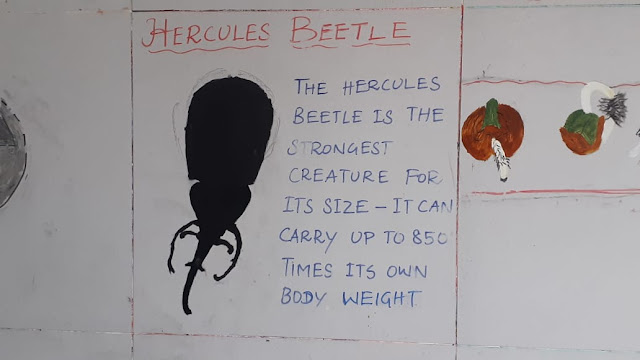 HERCULES BEETLE
THE HERCULES
BEETLE IS THE
STRONGEST
CREATURE FOR
ITS SIZE – IT CAN
CARRY UP TO 850
TIMES ITS OWN
BODY WEIGHT